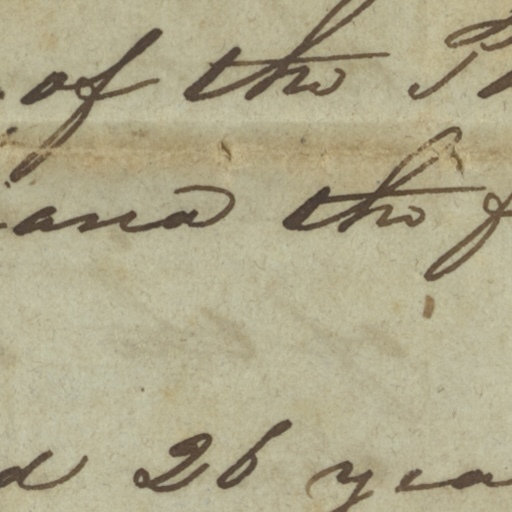 of the
iana the
d 26 yea